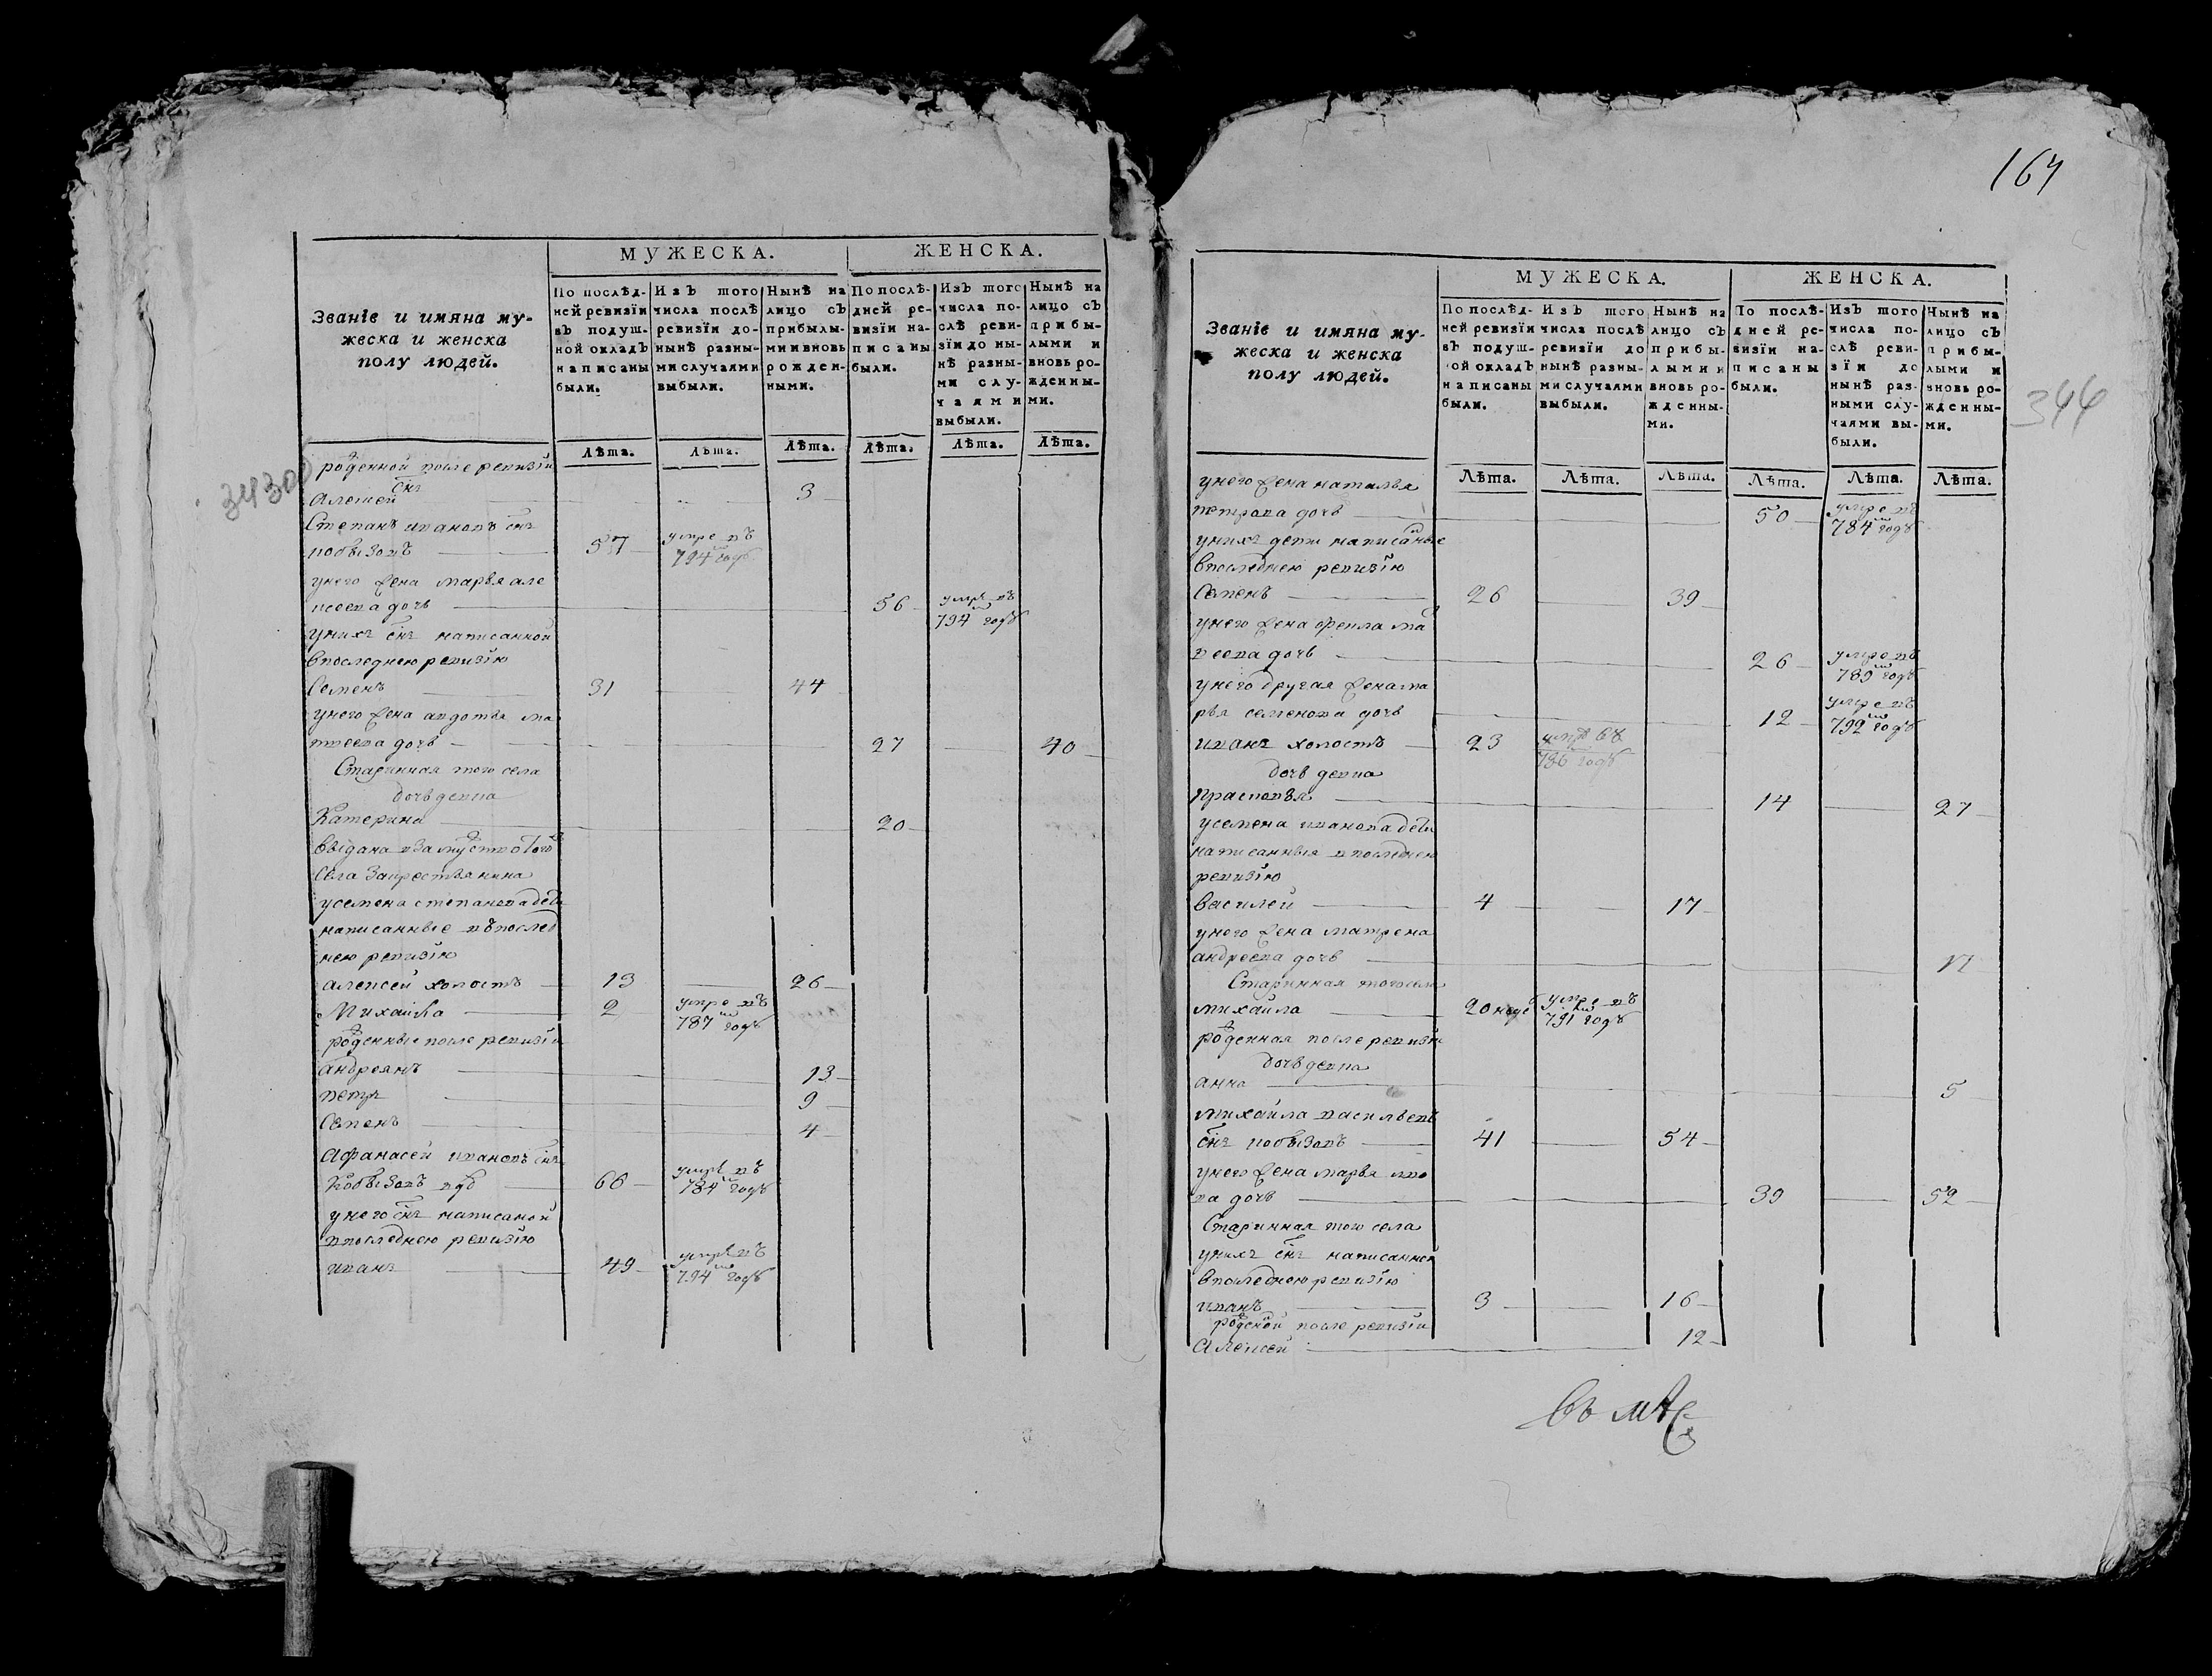 МУЖЕСКА. ЖЕНСКА.
Званїе и имяна мужеска и женска полу людей.
По послѣдней ревизїи въ подушной окладъ написаны были.
Изъ того числа послѣ ревизїи до нынѣ разными случаями выбыли.
Нынѣ на лицо съ прибылыми и вновь рожденными.
По послѣдней ревизїи написаны были.
Изъ того числа послѣ ревизїи до нынѣ разными случаями выбыли.
Нынѣ на лицо съ прибылыми и вновь рожденными.
Лѣта. Лѣта. Лѣта. Лѣта. Лѣта. Лѣта.
роденной после ревизїи
снъ
алексей 3
Степанъ ивановъ снъ
кобызовъ 57 умре въ 794м годѣ
унего жена марья але
ксеева дочь 56 умре въ 794м годѣ
унихъ снъ написанной
впоследнею ревизїю
Семенъ 31 44
унего жена авдотья ма
твеева дочь 27 40
Старинная того села
дочь девка
Катерина 20
выдана взамуство того
села за крестьянина
усемена степанова дети
написанные въпослед
нею ревизїю
алексей холостъ 13 26
Михайла 2 умре въ 787м годѣ
роденные после ревизїи
андреянъ 13
петръ 9
Семенъ 4
Афанасей ивановъ снъ
Кобызовъ вдо 66 умре въ 784м годѣ
унего снъ написаной
впоследнею ревизїю
иванъ 49 умре въ 794м годѣ
34300
164
344
МУЖЕСКА. ЖЕНСКА.
Званїе и имяна мужеска и женска полу людей.
По послѣдней ревизїи въ подушной окладъ написаны были.
Изъ того числа послѣ ревизїи до нынѣ разными случаями выбыли.
Нынѣ на лицо съ прибылыми и вновь рожденными.
По послѣдней ревизїи написаны были.
Изъ того числа послѣ ревизїи до нынѣ разными случаями выбыли.
Нынѣ на лицо съ прибылыми и вновь рожденными.
Лѣта. Лѣта. Лѣта. Лѣта. Лѣта. Лѣта.
унего жена наталья
петрова дочь 50 умре въ 784м годѣ
унихъ дети написаные
впоследнею ревизїю
Семенъ 26 39
унего жена фекла ма
веева дочь 26 умре въ 789м годѣ
унего другая жена ма
рья семенова дочь 12 умре въ 792м годѣ
иванъ холостъ 23 умре въ 786 годѣ
дочь девка
прасковья 14 27
усемена иванова дети
написанныя впоследнею
ревизїю
василей 4 17
унего жена матрена
андреева дочь 17
Старинная тогосела
михайла 20 неде умре въ 791м годѣ
роденная после ревизїи
дочь девка
анна 5
михайла васильевъ
снъ кобызовъ 41 54
унего жена марья
ва дочь 39 52
Старинная того села
унихъ снъ написанной
впоследнею ревизїю
иванъ 3 16
роденой после ревизїи
Алексей 12